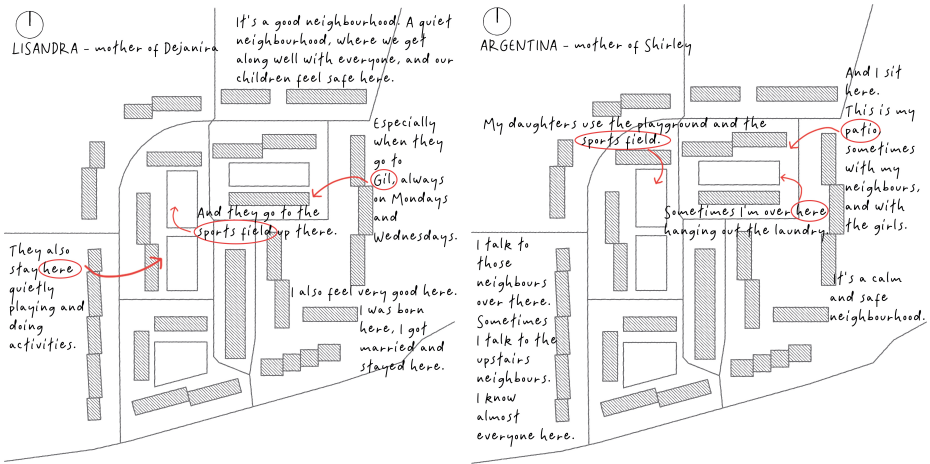 LISANDRA - mother of Dejanira
It's a good neighbourhood. A quiet
neighbourhood, where we get
along well with everyone, and our
children feel safe here.
Especially
when they
go to
Gil, always
on Mondays
and
Wednesdays.
And they go to the
sports field up there.
They also
stay here
quietly
playing and
doing
activities.
I also feel very good here.
I was born
here, I got
married and
stayed here.
ARGENTINA - mother of Shirley
My daughters use the playground and the
sports field.
And I sit
here.
This is my
patio
sometimes
with my
neighbours,
and with
the girls.
Sometimes I'm over here
hanging out the laundry.
I talk to
those
neighbours
over there.
Sometimes
I talk to the
upstairs
neighbours.
I know
almost
everyone here.
It's a calm
and safe
neighbourhood.